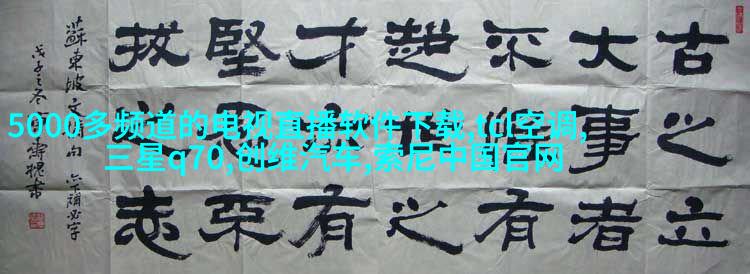 古之立
大事者
不惟有
超世之
才亦有
堅忍不
拔之志
蘇東坡文句 亦下補必字
戊子之冬書
5000多频道的电视直播软件下载,tcl空调,
三星q70,创维汽车,索尼中国官网